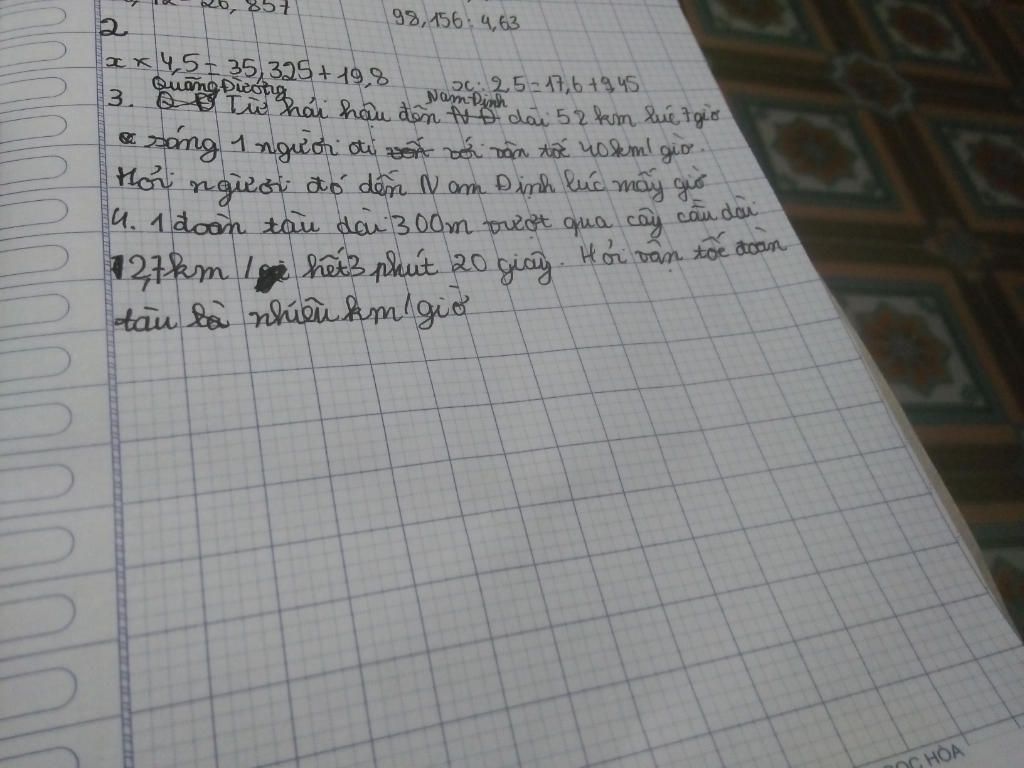 26,857
98,156 : 4,63
2
x × 4,5 = 35,325 + 19,8
x : 2,5 = 17,6 + 9,45
Quãng Đường
Nam Định
3. Từ hải hậu đến dài 52 km lúc 7 giờ
sáng 1 người đi với vận tốc 40km/giờ.
Hỏi người đó đến Nam Định lúc mấy giờ
4. 1 đoàn tàu dài 300m vượt qua cây cầu dài
2,7km hết 3 phút 20 giây. Hỏi vận tốc đoàn
tàu là nhiêu km/giờ
HÒA